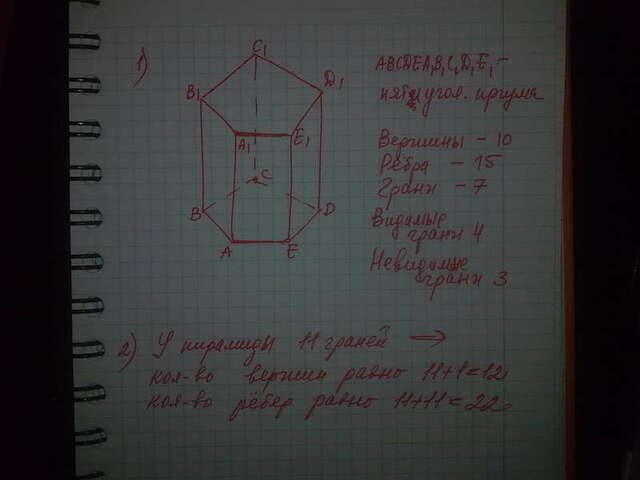 1)
C1
B1
D1
A1
E1
C
B
D
A
E
ABCDEA1B1C1D1E1 -
пятиугол. призма
Вершины - 10
Рёбра - 15
Грани - 7
Видимые
грани 4
Невидимые
грани 3
2) У пирамиды 11 граней =>
кол-во вершин равно 11+1=12,
кол-во рёбер равно 11+11=22.